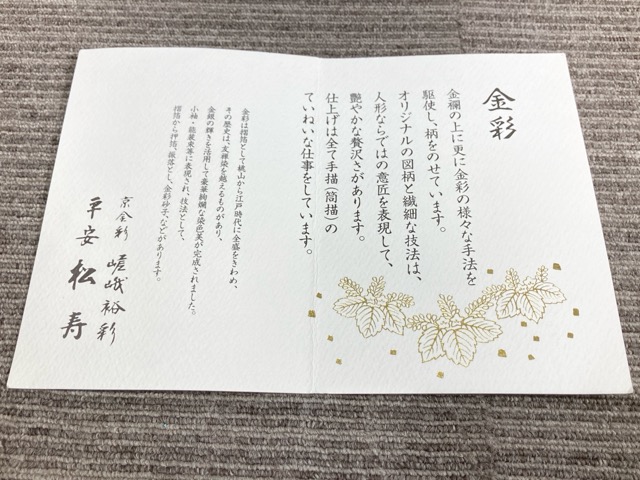 金彩
金襴の上に更に金彩の様々な手法を
駆使し、柄をのせています。
オリジナルの図柄と繊細な技法は、
人形ならではの意匠を表現して、
艶やかな贅沢さがあります。
仕上げは全て手描(筒描)の
ていねいな仕事をしています。
金彩は摺箔として桃山から江戸時代に全盛をきわめ、
その歴史は、友禅染を越えるものがあり、
金銀の輝きを活用して豪華絢爛な染色美が完成されました。
小袖・能装束等に表現され、技法として、
摺箔から押箔、振落とし、金彩砂子、などがあります。
京金彩 嵯峨裕彩
平安 松寿